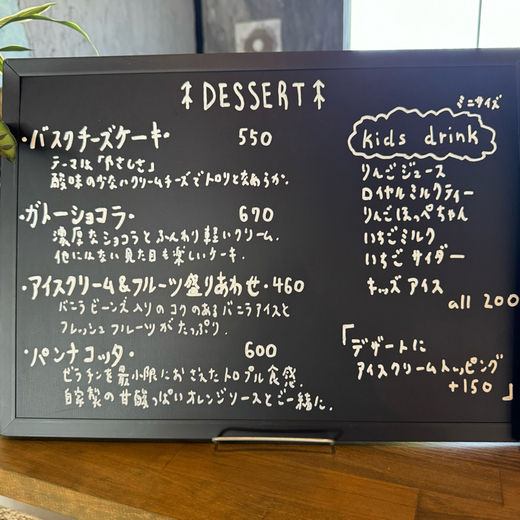 DESSERT
・バスクチーズケーキ・ 550
テーマは「やさしさ」
酸味の少ないクリームチーズでトロリとなめらか.
・ガトーショコラ・ 670
濃厚なショコラとふんわり軽いクリーム.
他にはない見た目も楽しいケーキ.
・アイスクリーム&フルーツ盛りあわせ・460
バニラビーンズ入りのコクのあるバニラアイスと
フレッシュフルーツがたっぷり.
・パンナコッタ・ 600
ゼラチンを最小限におさえたトロプル食感.
自家製の甘酸っぱいオレンジソースとご一緒に.
ミニサイズ
kids drink
りんごジュース
ロイヤルミルクティー
りんごほっぺちゃん
いちごミルク
いちごサイダー
キッズアイス
all 200
「デザートに
アイスクリームトッピング
+150」